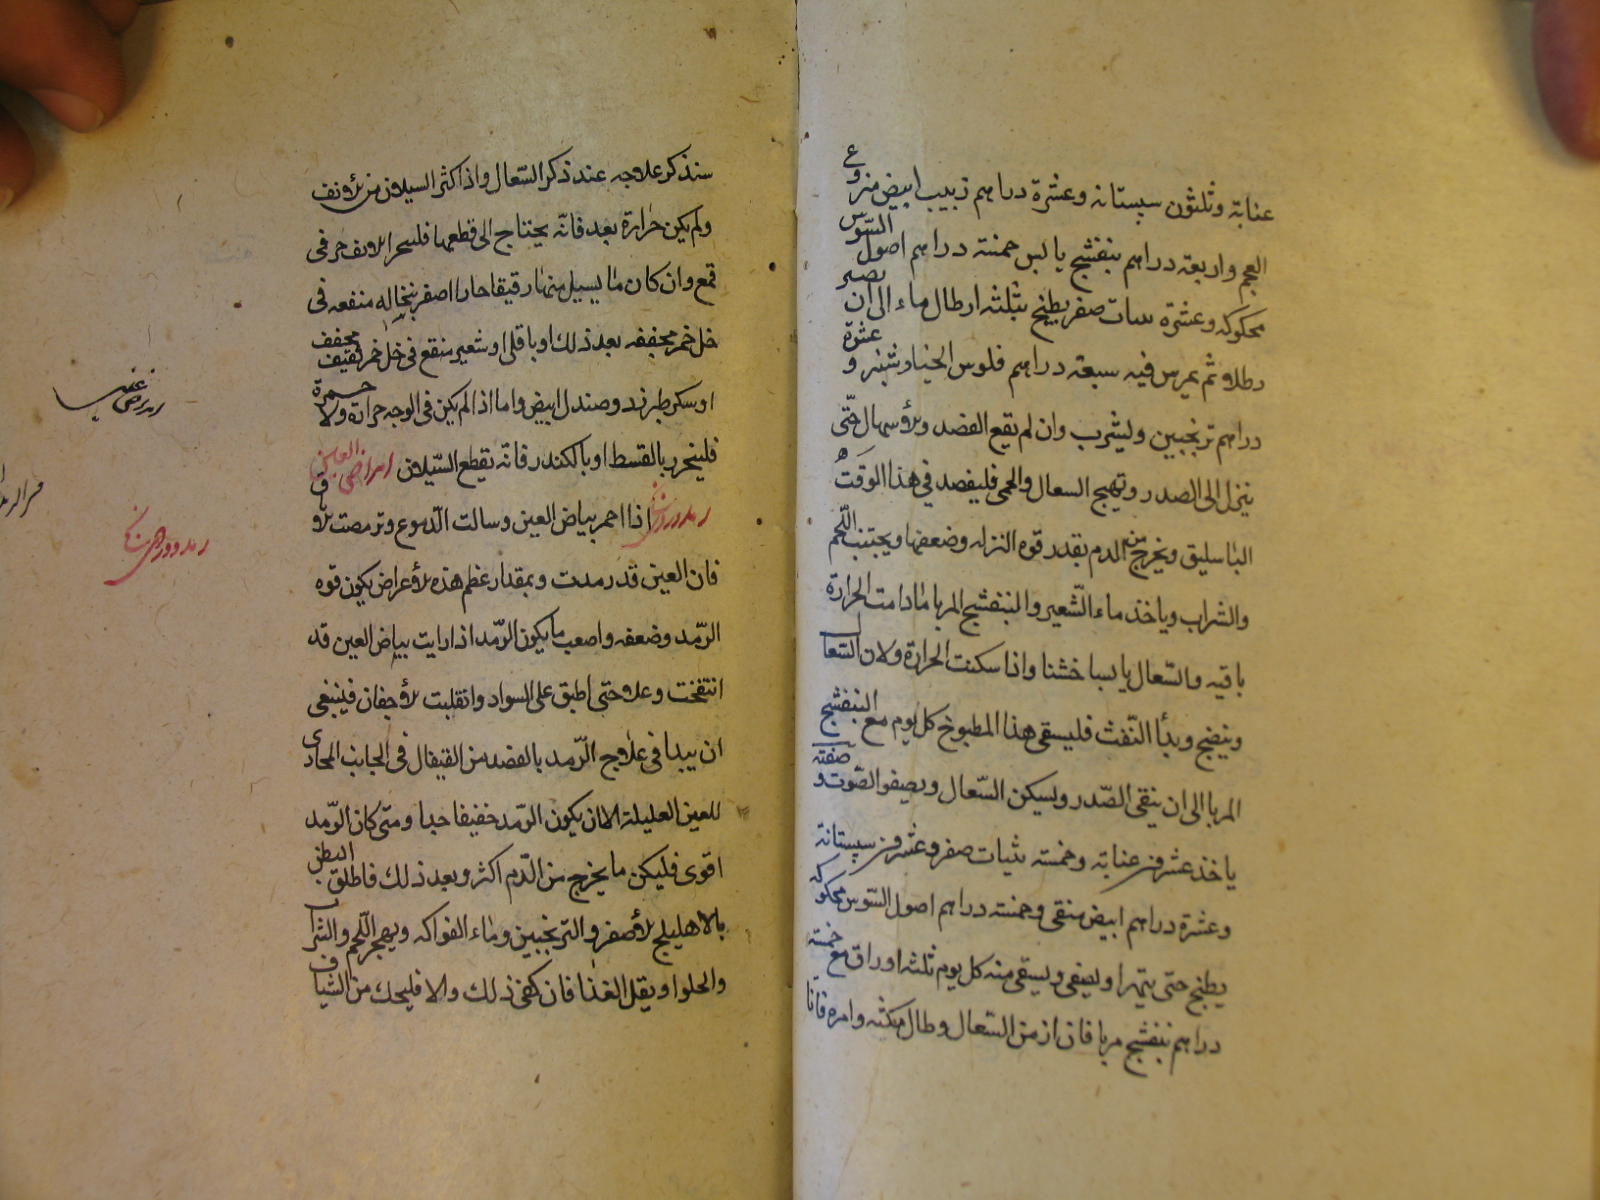 عنابة وثلثون سپستانة وعشرة دراهم زبيب ابيض منزوع
العجم واربعة دراهم بنفشج يابس خمسة دراهم اصول السّوس
محكوكة وعشرة تينات صفر يطبخ بثلثه ارطال ماء الى ان يصير
رطلا ثم يمرس فيه سبعة دراهم فلوس الخيارشنبر و عشرة
دراهم ترنجبين وليشرب وان لم يقع الفصد والاسهال حتّى
ينزل الى الصدر وتهيج السعال والحمى فليفصد فى هذا الوقت
الباسليق ويخرج من الدم بقدر قوه النزله وضعفها ويجتنب اللّحم
والشراب وياخذ ماء الشّعير والبنفشج المربا مادامت الحرارة
باقيه والسّعال يابسا خشنا واذا سكنت الحرارة ولان السّعال
وينضج وبدأ النّفث فليسقى هذا المطبوخ كل يوم مع البنفشج
المربا الى ان ينقى الصّدر ويسكن السّعال ويصفو الصّوت و صفته
ياخذ عشرين عنابة وخمسه تينات صفر وعشرين سپستانة
وعشرة دراهم ابيض منقى وخمسة دراهم اصول السّوس محكوكه
يطبخ حتى يتهرا ويصفى ويسقى منه كل يوم ثلثه اوراق مع خمسة
دراهم بنفشج مربا فان ازمن السّعال وطال مكثه وامره فانا
سنذكر علاجه عند ذكر السّعال واذا كثر السيلان من الانف
ولم يكن حرارة بعد فانّه يحتاج الى قطعها فليبخر الانف
قمع وان كان ما يسيل منها رقيقا حارا اصفر بنخاله منقعه فى
خل خمر مجففه بعد ذلك او باقلى او شعير منقع فى خل خمر ثقيف مجفف
او سكر طبرزد وصندل ابيض واما اذا لم يكن فى الوجه حرارة ولا حمرة
فليبخر بالقسط او بالكندر فانّه يقطع السّيلان امراض العين
رمد اذا احمر بياض العين وسالت الدّموع وترمصت الآماق
فان العين قد رمدت وبمقدار عظم هذه الاعراض يكون قوه
الرّمد وضعفه واصعب ما يكون الرّمد اذا رايت بياض العين قد
انتفخت وعلا حتى اطبق على السواد وانقلبت الاجفان فينبغى
ان يبدا فى علاج الرّمد بالفصد من القيفال فى الجانب المحاذى
للعين العليلة الا ان يكون الرّمد خفيفا جدا ومتى كان الرّمد
اقوى فليكن ما يخرج من الدّم اكثر وبعد ذلك فاطلق البطن
بالاهليلج الاصفر والترنجبين وماء الفواكه ويهجر اللّحم والشراب
والحلوا ويقل الغذا فان كفى ذلك والا فليحك من الشياف